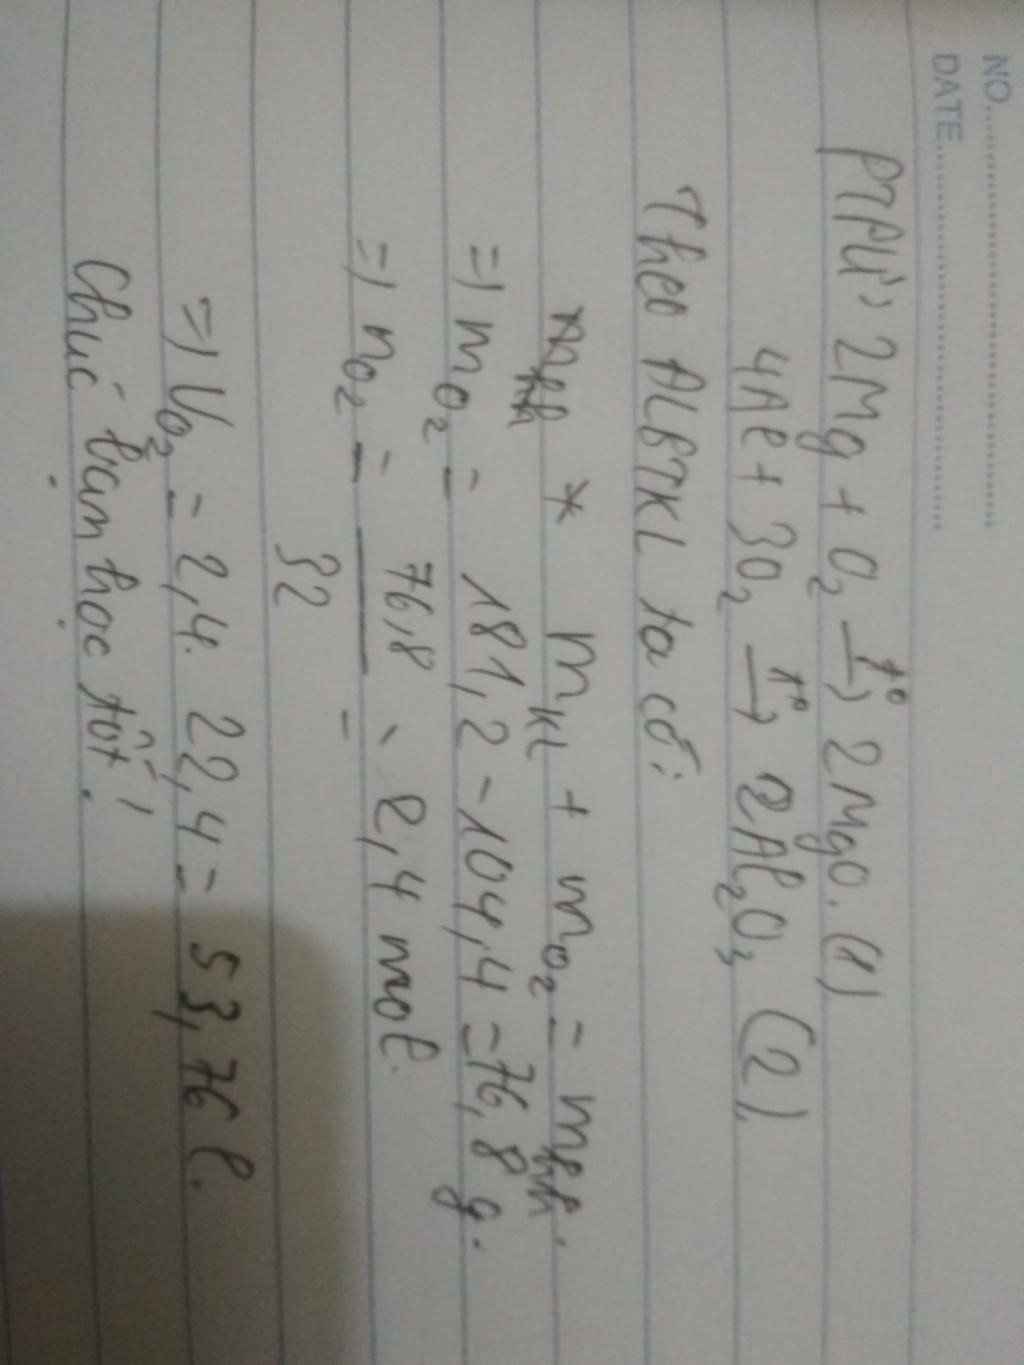 NO.
DATE
PTPƯ: 2Mg + O₂ —t°→ 2MgO. (1)
4Al + 3O₂ —t°→ 2Al₂O₃ (2)
Theo ĐLBTKL ta có:
m_KL + m_O₂ = m_hh.
=> m_O₂ = 181,2 - 104,4 = 76,8 g.
=> n_O₂ = 76,8 / 32 = 2,4 mol.
=> V_O₂ = 2,4. 22,4 = 53,76 l.
Chúc bạn học tốt!